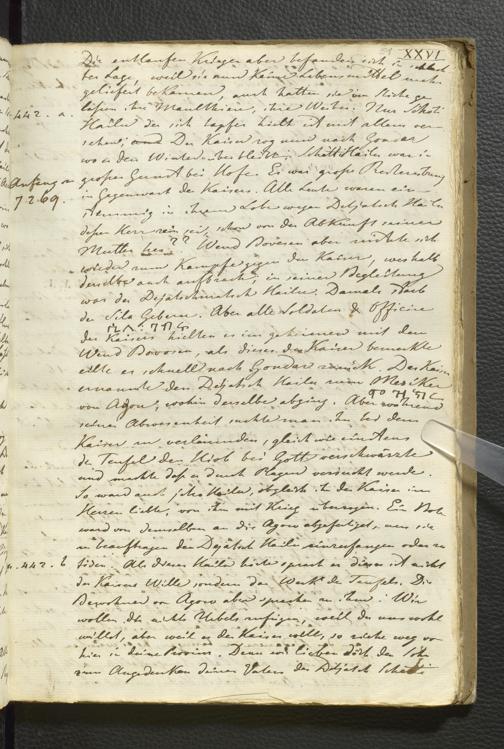 XXVI
Die entlaufen Krieger aber befanden sich in
ter Lage, weil sie nun keine Lebensmittel mehr
geliefert bekamen, auch hatten sie im Stiche ge
lassen ihre Maulthiere, ihre Weiber. Nur
442. a. Hailu der sich tapfer hielt ist mit allem ver
sehen, Der Kaiser zog nun nach Gondar
wo er den Winter über bleibt. Hailu war in
Anfang v großer Gunst bei Hofe. Es war große
7.2.69. in Gegenwart des Kaisers. Alle Leute waren ein
stimmig in ihrem Lobe wegen Dedjatsch Hailu
dessen Herr sein sei, schon von der Abkunft seiner
Mutter her?? Wend Bovosen aber rüstete sich
wieder zum Kampfe gegen den Kaiser, weshalb
derselbe auch aufbrach, in seiner Begleitung
war der Dejatschmatsch Hailu. Damals starb
der Sila Geberu. Aber alle Soldaten & Officire
des Kaisers hielten es im geheimen mit dem
Wend Bovosen, als dieses der Kaiser bemerkte
eilte er schnell nach Gondar zurück. Der Kaiser
ernannte den Dejatsch Hailu zum
von Agow, wohin derselbe abging. Aber während
seiner Abwesenheit suchte man ihn bei dem
Kaiser zu verläumden, gleich wie einstens
der Teufel den Hiob bei Gott verschwärzte
und machte daß er durch Plagen versucht werde.
So ward auch jetzt Hailu, obgleich ihn der Kaiser im
Herzen liebte, von ihm mit Krieg überzogen. Ein Bote
ward von demselben an die Agow abgefertigt, um sie
zu beauftragen den Dejatsch Hailu einzufangen oder zu
442. b tödten. Als dieses Hailu hörte sprach er dieses ist nicht
des Kaisers Wille sondern das Werk des Teufels. Die
Bewohner von Agow aber sprachen zu ihm: Wir
wollen dir nichts Uebels zufügen, weil du uns wohl
willst, aber weil es der Kaiser will, so ziehe weg von
hier in deine Provinz. Denn wir lieben dich den Sohn
zum Angedenken deines Vaters des Dejatsch